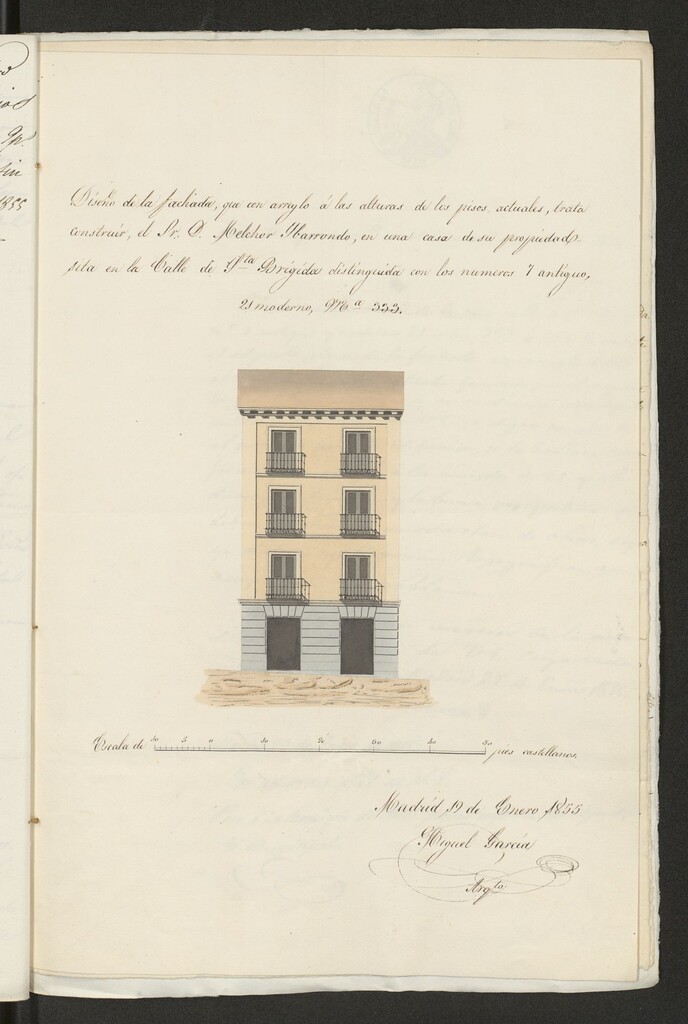 Diseño de la fachada, que con arreglo á las alturas de los pisos actuales, trata
construir, el Sr. D. Melchor Ybarrondo, en una casa de su propiedad
sita en la Calle de Sta Brigida distinguida con los numeros 7 antiguo,
21 moderno, Mª 333.
Escala de 10 5 0 10 20 30 40 50 pies castellanos.
Madrid 19 de Enero 1855
Miguel Garcia
Arqto
1855